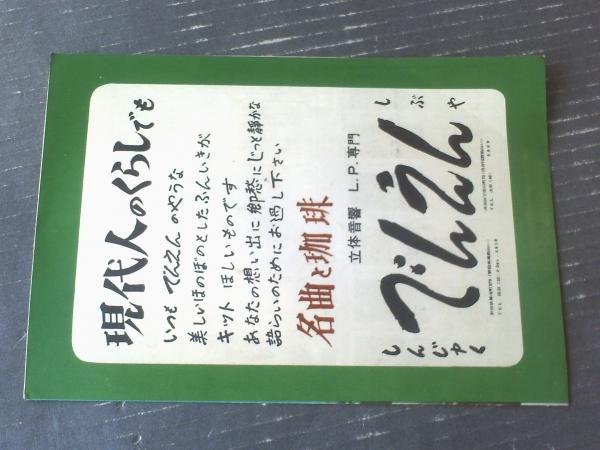 現代人のくらしでも
いつも でんえん のやうな
美しいほのぼのとしたふんいきが
キット ほしいものです
あなたの想い出に郷愁にじっと静かな
語らいのためにお過し下さい
名曲と珈琲
立体音響 L.P.専門
しぶや
でんえん
しんじゆく